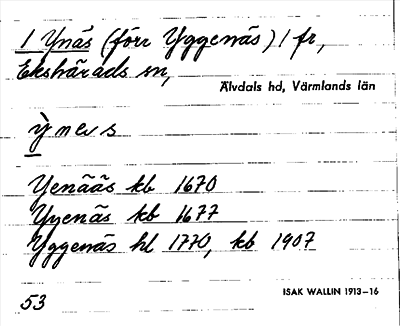 1 Ynäs (förr Yggenäs) 1 fr,
Ekshärads sn,
Älvdals hd, Värmlands län
Yenääs kb 1670
Yyenäs kb 1677
Yggenäs hl 1770, kb 1907
53
ISAK WALLIN 1913–16